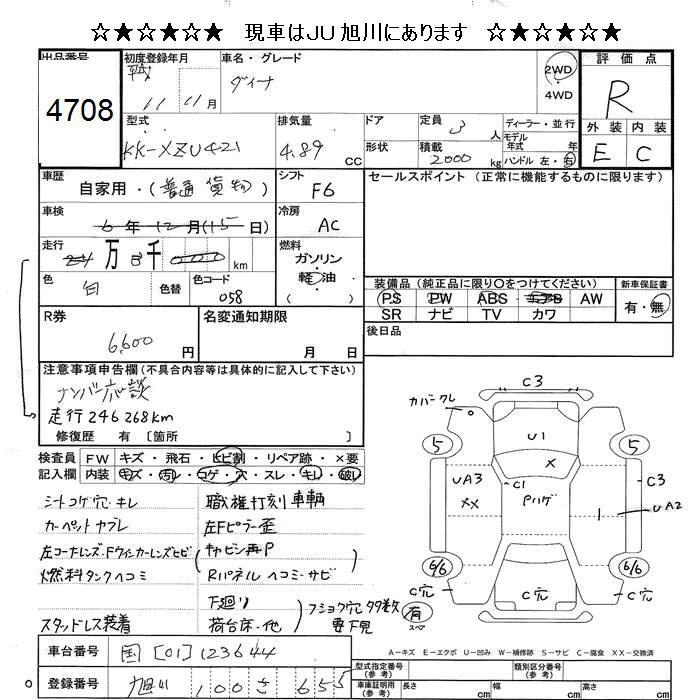 ☆★☆★☆★ 現車はJU旭川にあります ☆★☆★☆★
出品番号
4708
初度登録年月
11 11月
車名・グレード
ダイナ
2WD
4WD
評価点
R
外装 内装
E C
型式
KK-XZU421
排気量
4.89 CC
ドア
形状
定員
3 人
積載
2000 kg
ディーラー・並行
モデル
年式 年
ハンドル 左・右
車歴
自家用・(普通貨物)
シフト
F6
セールスポイント (正常に機能するものに限ります)
車検
6年12月(15日)
冷房
AC
走行
万 千 km
燃料
ガソリン
軽油
( )
色
白
色替
色コード
058
装備品 (純正品に限り○をつけてください)
PS PW ABS エアB AW
SR ナビ TV カワ
新車保証書
有・無
R券
6,600 円
名変通知期限
月 日
後日品
注意事項申告欄(不具合内容等は具体的に記入して下さい)
ナンバー応談
走行246268km
修復歴 有〔箇所 〕
検査員
記入欄
FW キズ・飛石・ヒビ割・リペア跡・×要
内装 キズ・汚レ・コゲ・穴・スレ・キレ・破レ
シートコゲ穴・キレ
カーペットヤブレ
左コーナーレンズ・Fウィンカーレンズヒビ
燃料タンクヘコミ
スタッドレス装着
職権打刻車輌
左Fピラー歪
キャビン再P
Rパネルヘコミ・サビ
下廻り
荷台床・他
フショク穴多数
要下見
カバークレ
C3
5
5
U1
×
C1
UA3
××
Pハゲ
C3
1
UA2
6/6
6/6
C穴
C穴
C穴
有
スペア
A−キズ E−エクボ U−凹み W−補修跡 S−サビ C−腐食 XX−交換済
車台番号
国[01]123644
登録番号
旭川 100 さ 655
型式指定番号
(参考)
類別区分番号
(参考)
車庫証明用
(参考)
長さ cm
幅 cm
高さ cm